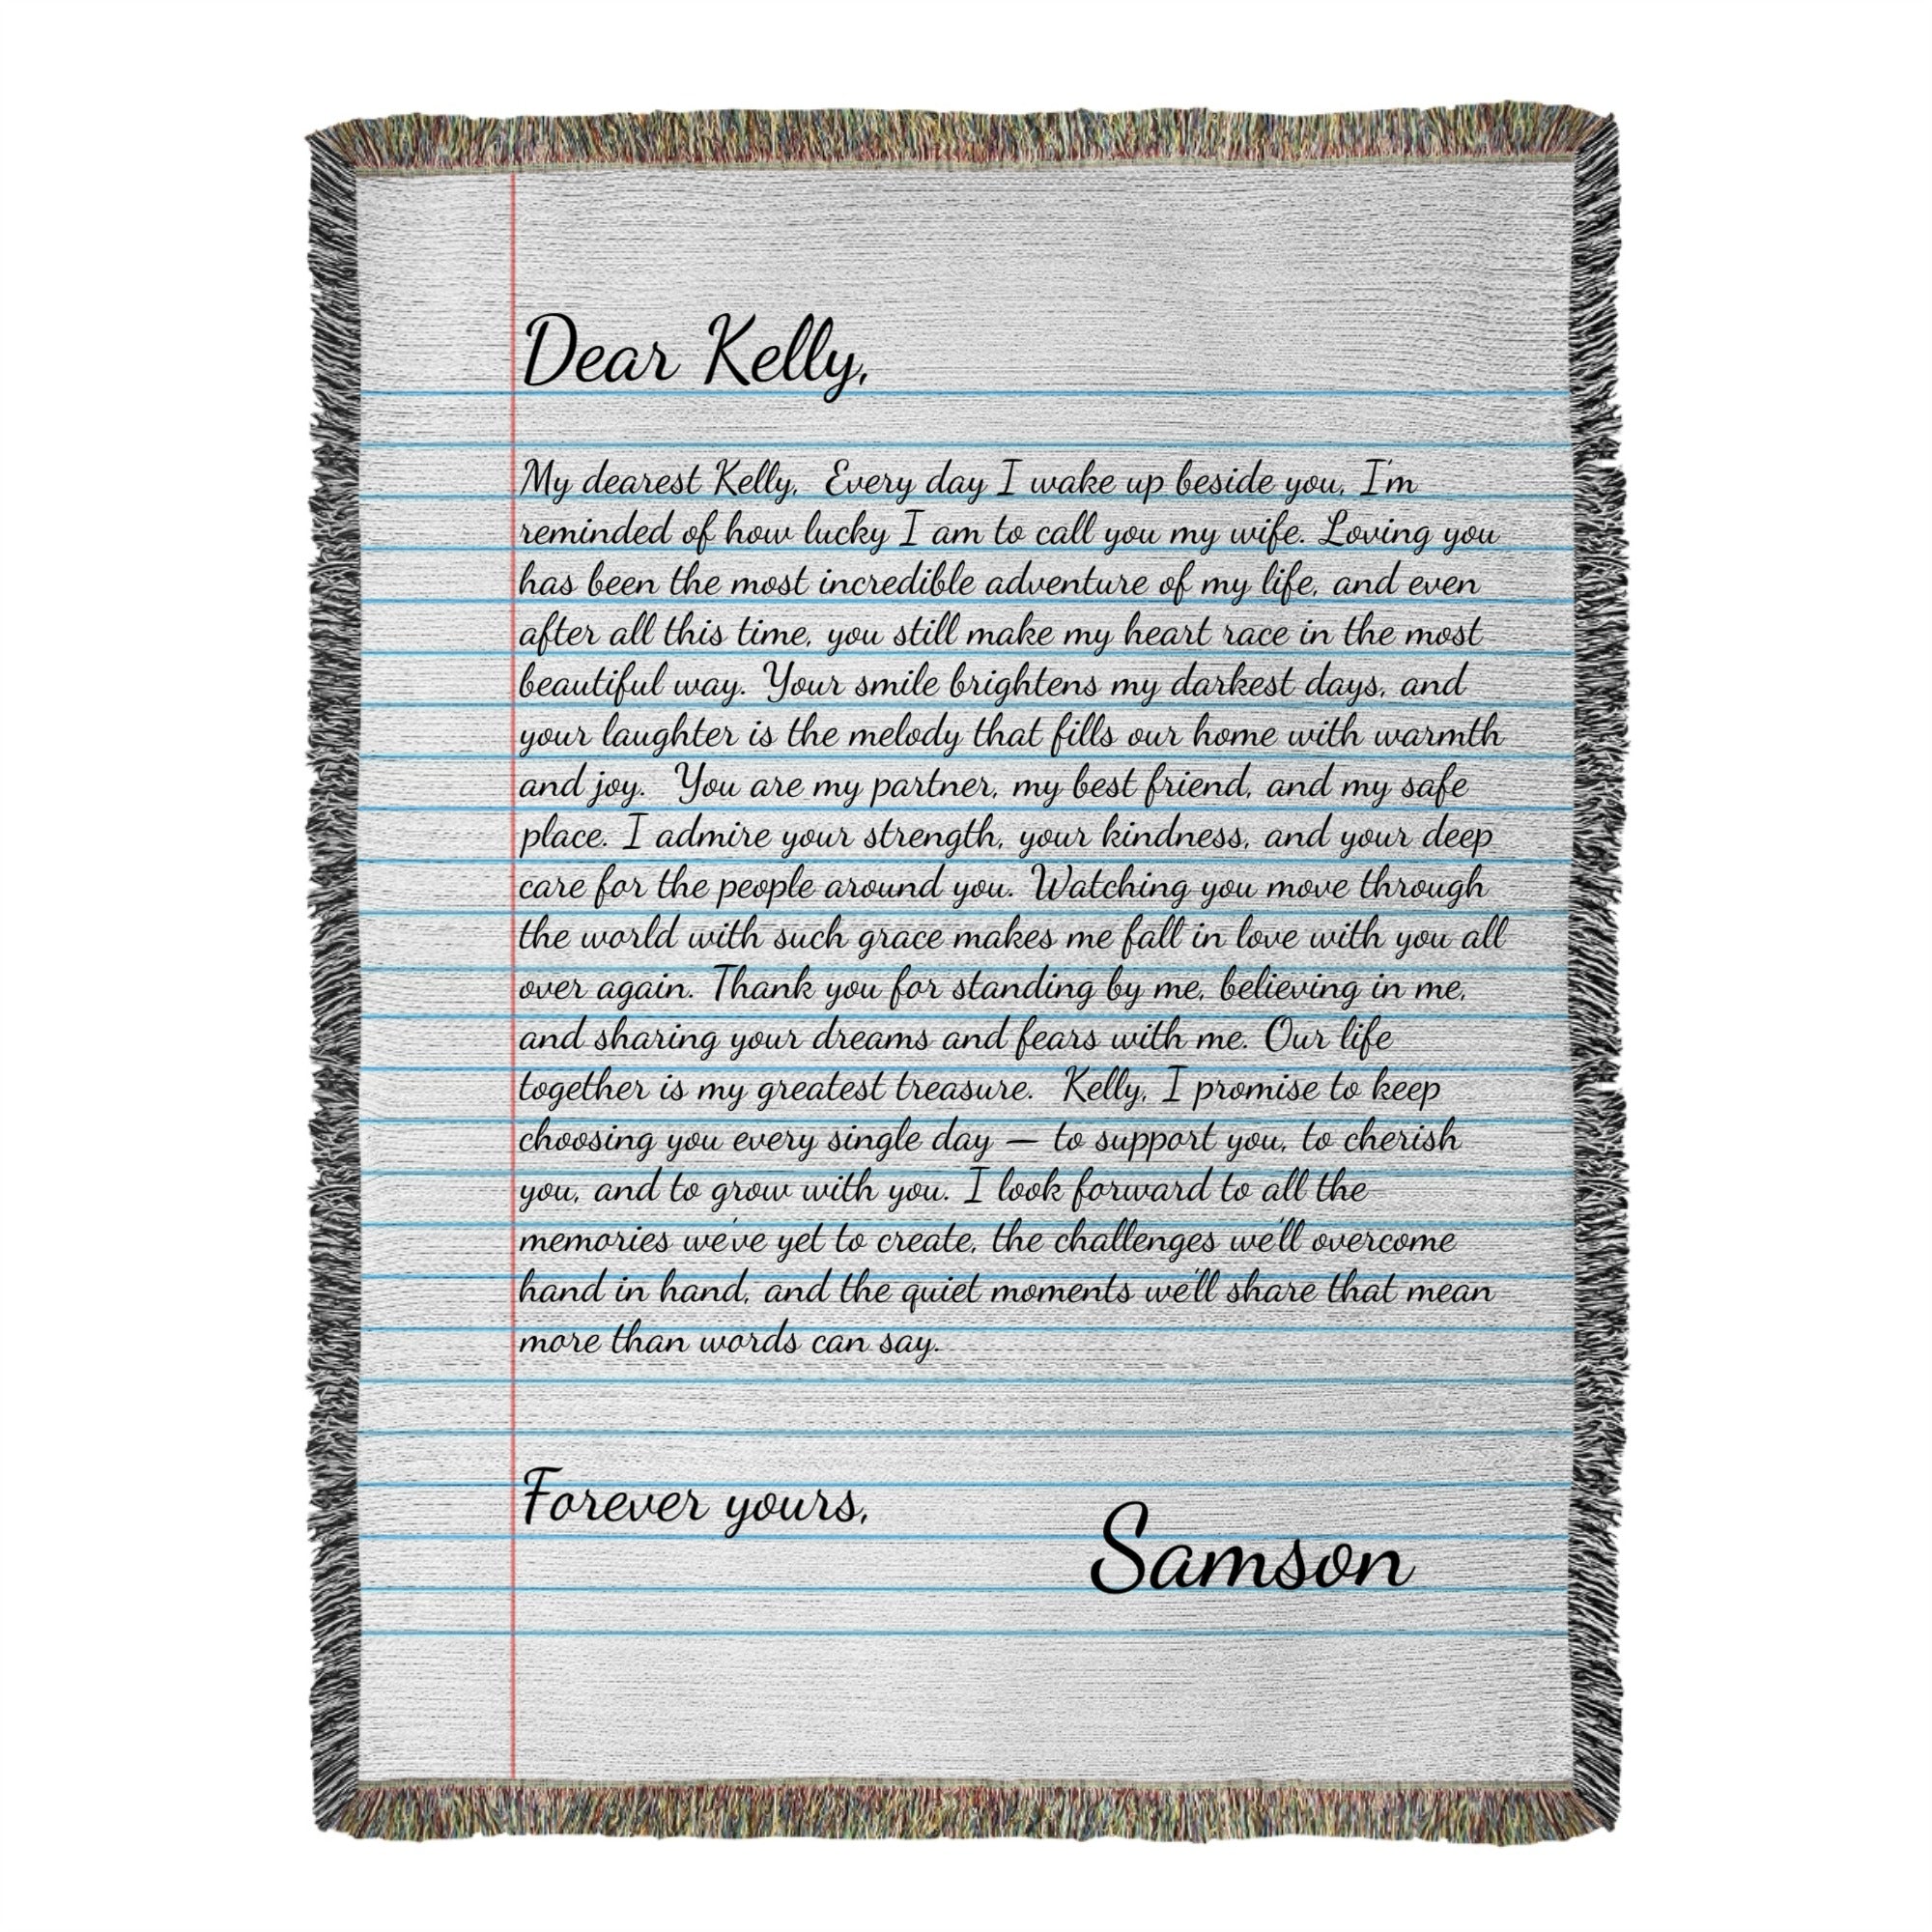 Dear Kelly,
My dearest Kelly,  Every day I wake up beside you, I'm
reminded of how lucky I am to call you my wife. Loving you
has been the most incredible adventure of my life, and even
after all this time, you still make my heart race in the most
beautiful way. Your smile brightens my darkest days, and
your laughter is the melody that fills our home with warmth
and joy.  You are my partner, my best friend, and my safe
place. I admire your strength, your kindness, and your deep
care for the people around you. Watching you move through
the world with such grace makes me fall in love with you all
over again. Thank you for standing by me, believing in me,
and sharing your dreams and fears with me. Our life
together is my greatest treasure.  Kelly, I promise to keep
choosing you every single day — to support you, to cherish
you, and to grow with you. I look forward to all the
memories we've yet to create, the challenges we'll overcome
hand in hand, and the quiet moments we'll share that mean
more than words can say.
Forever yours,
Samson